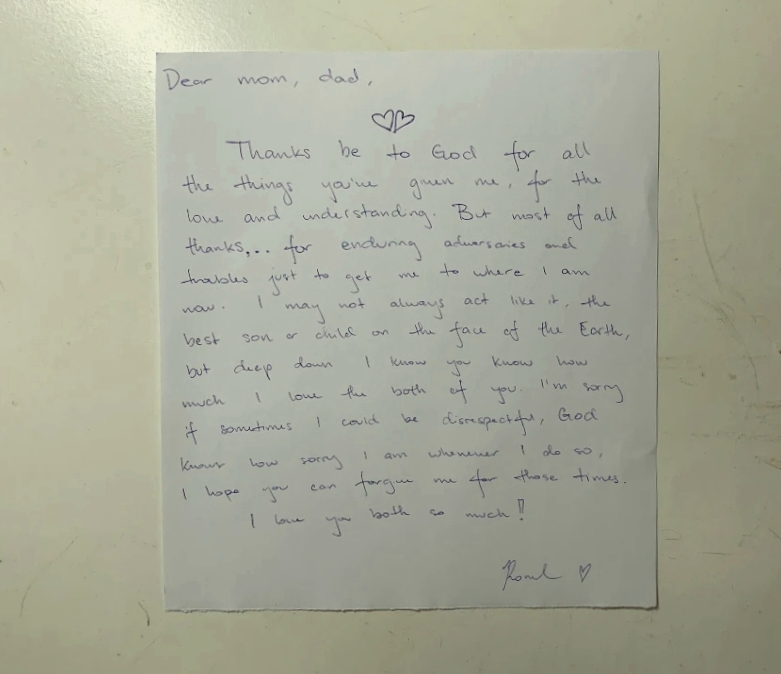 Dear mom, dad,
Thanks be to God for all
the things you've given me, for the
love and understanding. But most of all
thanks,.. for enduring adversaries and
troubles just to get me to where I am
now. I may not always act like it, the
best son or child on the face of the Earth,
but deep down I know you know how
much I love the both of you. I'm sorry
if sometimes I could be disrespectful, God
knows how sorry I am whenever I do so,
I hope you can forgive me for those times.
I love you both so much!